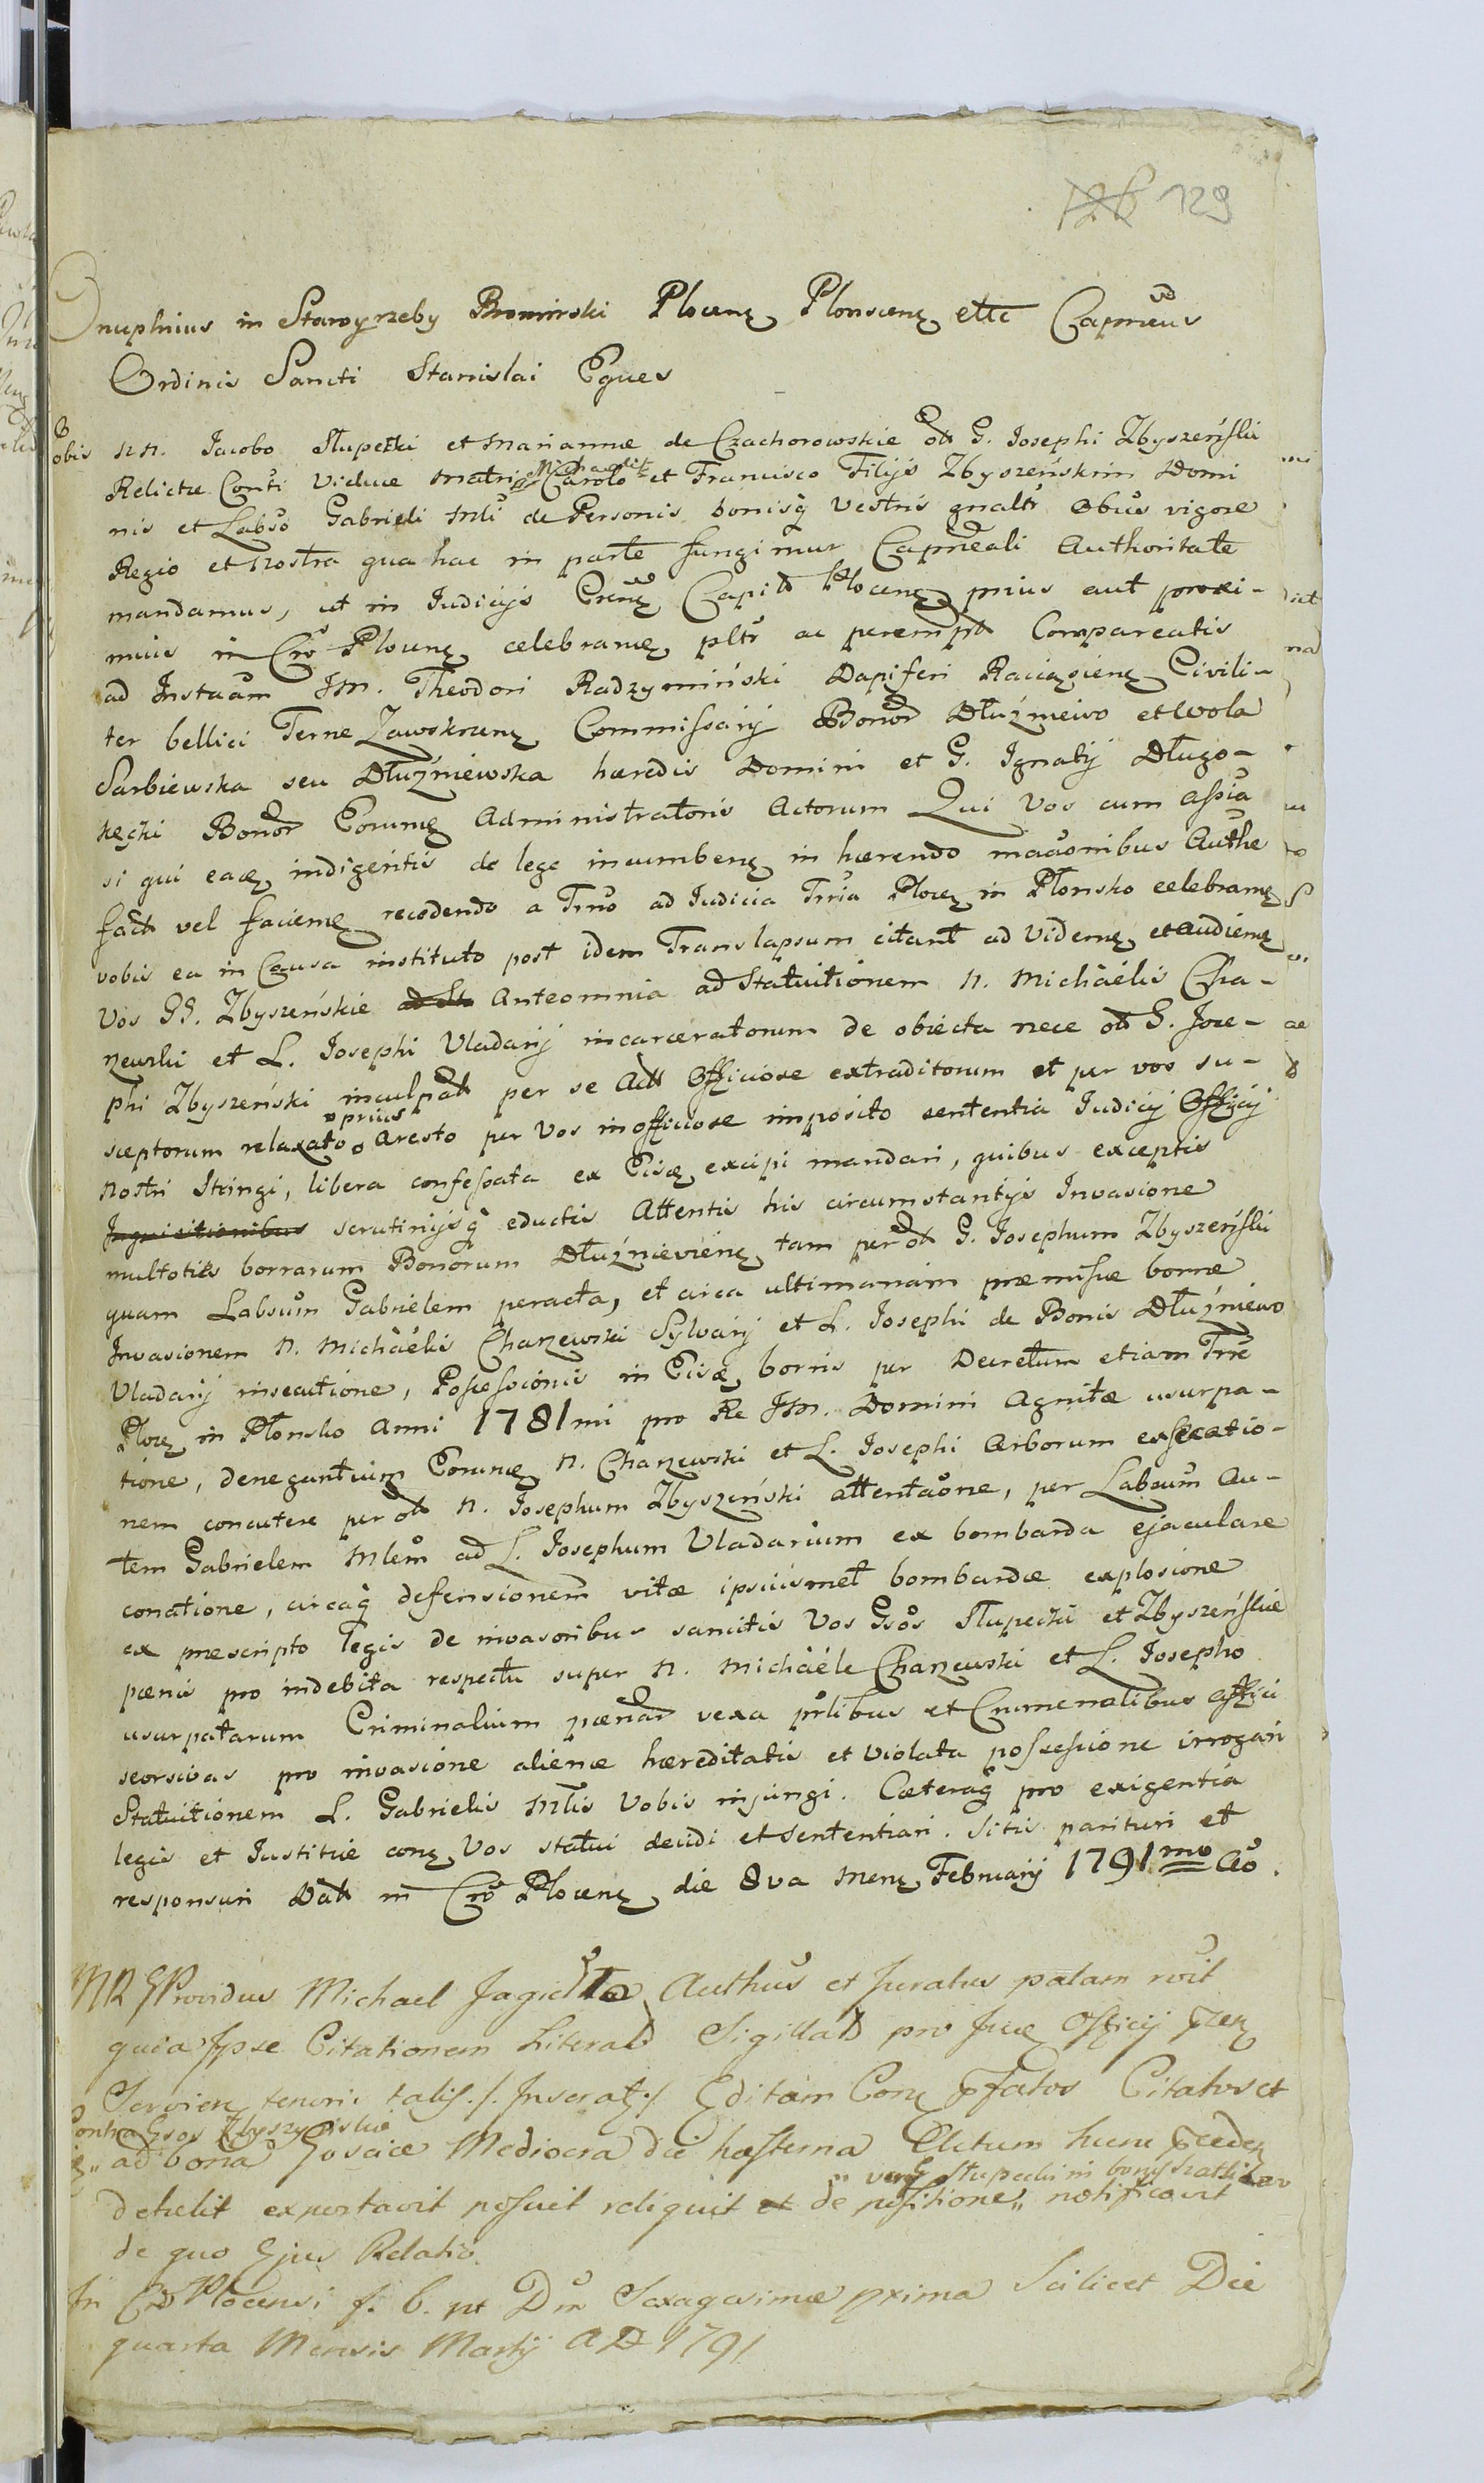 126 129
Onuphrius in Staroyrzeby Bromirski Plocenę Plonscenę ettc Capneus
Ordinis Sancti Stanislai Eques
Vobis NN. Jacobo Słupetki et Mariannæ de Czachorowskie olt G. Josephi Zbyszeńskii
Relictæ Conti Viduæ Matri Michaeli Carolo et Francisco Filijs Zbyszeńskim Domi
nis et Labso Gabrieli Mli de Personis bonisq vestris gnaltr Obus vigore
Regio et Nostra qua hac in parte fungimur Capneali Authoritate
mandamus, ut in Iudicijs Crenę Capit Plocenę prius aut proxi-
mius in Cro Plocenę celebranę pltr ac perempt Compareatis
ad Instaam JM. Theodori Radzymiński Dapiferi Raciązienę Civili-
ter bellici Terrae Zawskrzenę Commissarij Bonor Dłużniewo et Wola
Sarbiewska seu Dłużniewska hæredis Domini et G. Ignatij Długo-
kęcki Bonor Eorumę Administratoris Actorum Qui Vos cum assia
si qui eaę indigentis de lege incumbenę in hærendo maaonibus Authe
fact vel faciemę recedendo a Trno ad Iudicia Trria Plocę in Płonsko celebramę
vobis ea in Causa instituto post idem Translapsum citant ad Videmę et audiemę
Vos GG. Zbyszeńskie ad St Anteomnia ad Statuitionem N. Michäelis Cha-
rzewski et L. Josephi Vladarij incarceratorum de obiecta nece olt G. Jose-
phi Zbyszeński inculpat per se Act Officiose extraditorum et per vos su-
sceptorum relaxato prius Aresto per Vos inofficiose imposito sententia Iudicij Officij
Nostri Stringi, libera confessata ex Eisę excipi mandari, quibus exceptis
Inquisitionibus scrutinijsq eductis Attentis his circumstantijs Invasione
multoties borrarum Bonorum Dłużnievienę tam per olt G. Josephum Zbyszeńskii
quam Labsum Gabrielem peracta, et circa ultimariam præmissæ bonæ
Invasionem N. Michäelis Charzewski Sylvarij et L. Josephi de Bonis Dłużniewo
Vladarij insecutione, Possessionis in Eisę bonis per Decretum etiam Trre
Plocę in Płonsko Anni 1781mi pro Re JM. Domini Agnitæ usurpa-
tione, denegantium Eorumę N. Charzewski et L. Josephi Arborum exsecatio-
nem concutere per olt N. Josephum Zbyszeński attentaone, per Labsum Au-
tem Gabrielem Mlem ad L. Josephum Vladarium ex bombarda ejaculare
conatione, circaq defensionem vitæ ipsiusmet bombardæ explosione
ex præscripto legis de invasoribus sancitis Vos Gsos Słupeckii et Zbyszeńskie
pænis pro indebita respectu super N. Michäele Charzewski et L. Josepho
usurpatarum Criminalium pænar vexa prlibus et Crumenalibus affici
seorsivas pro invasione alienæ hæreditatis et violata possessione irrogari
Statuitionem L. Gabrielis Mlis Vobis injungi. Cæteraq pro exigentia
legis et Iustitiæ conę Vos statui decidi et sententiari. Sitis parituri et
responsuri Dat in Cro Plocenę die 8va Menę Februarij 1791mo Ao.
MR Providus Michael Jagiełło Authus et Juratus palam rvit
quia Ipse Citationem Literal Sigillat pro Juę Officij
Servienę tenoris talis ./. Inserat ./. Editam Conę pfatos Citatos et
Contra Gsos Zbyszynskie
ad bona Goscice Mediocra die hesterna Elctum hunc
detulit exportavit posuit reliquit et de positione notificavit
de quo Ejus Relatio
In Cro Plocensi f. 6. pt Dm Sexagesimæ prima Scilicet Die
quarta Mensis Martij AD 1791